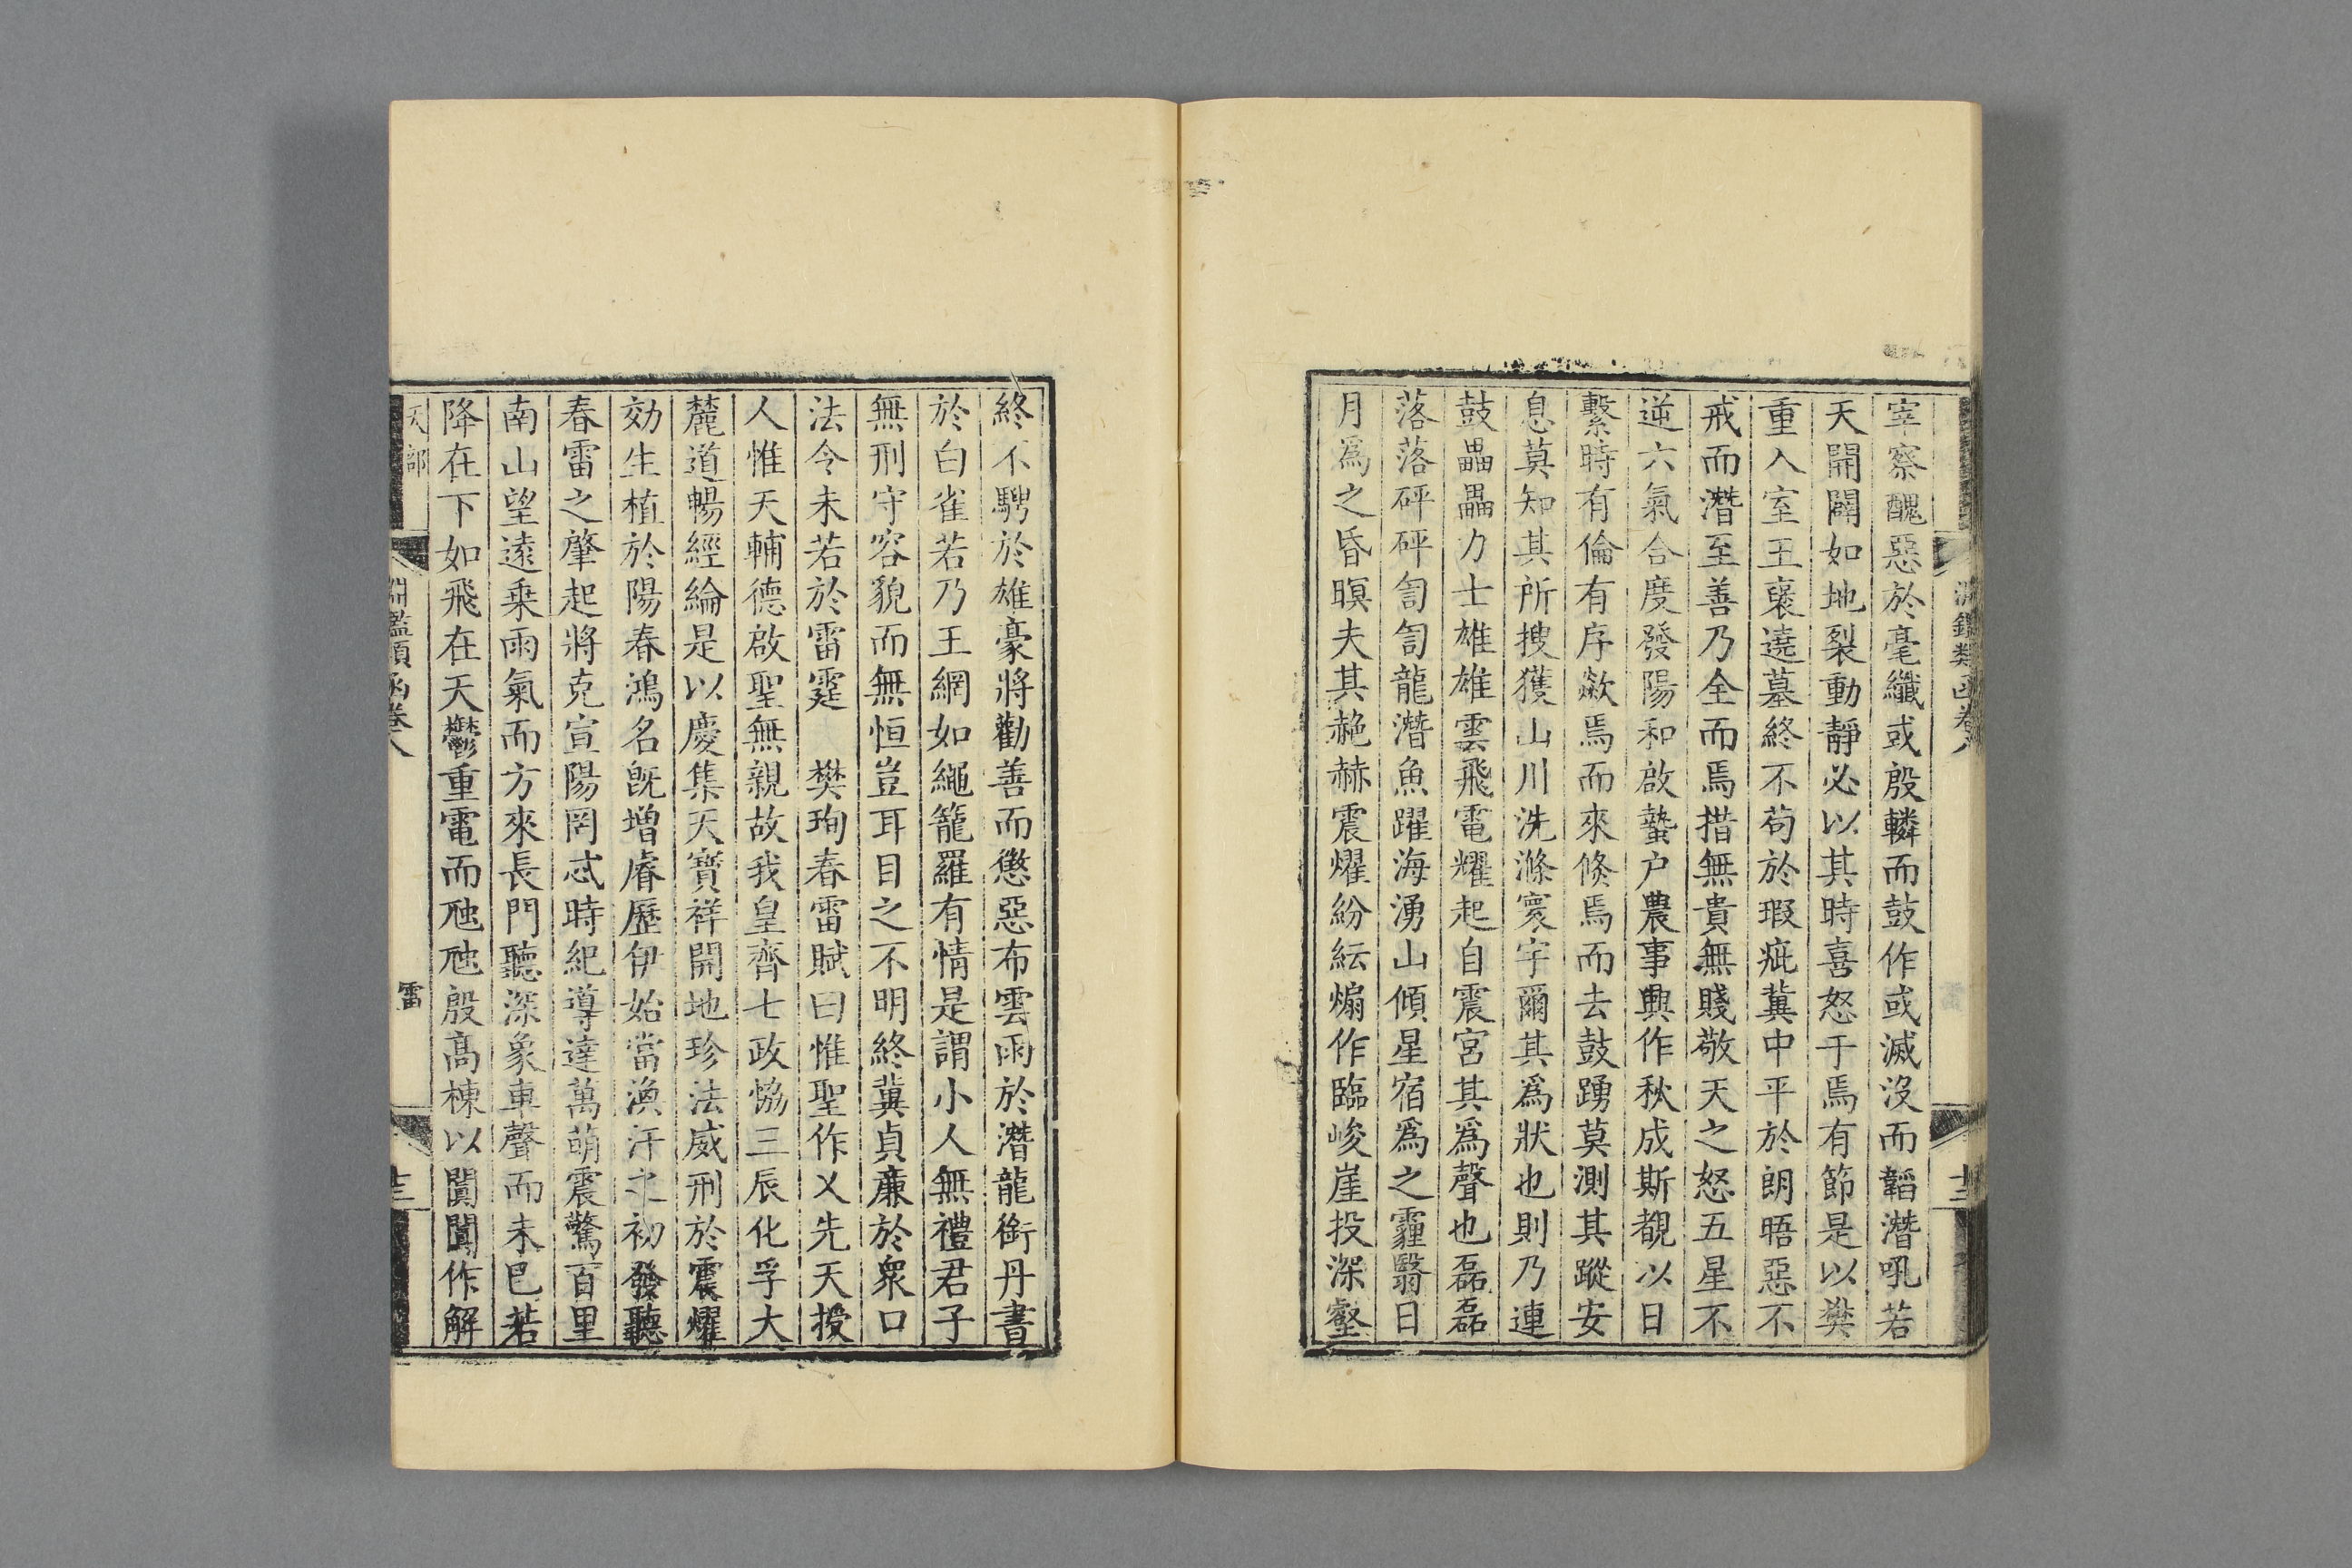 宰察醜惡於毫纖或殷轔而鼓作或滅沒而韜潛吼若
天開闢如地裂動靜必以其時喜怒于焉有節是以樊
重入室王裒遶墓終不苟於瑕疵冀中平於朗晤惡不
戒而潛至善乃全而焉措無貴無賤敬天之怒五星不
逆六氣合度發陽和啟蟄户農事興作秋成斯覩以日
繫時有倫有序歘焉而來倐焉而去鼓踴莫測其蹤安
息莫知其所搜獲山川洗滌寰宇爾其爲狀也則乃連
鼓畾畾力士雄雄雲飛電耀起自震宮其爲聲也磊磊
落落砰砰訇訇龍潛魚躍海湧山傾星宿爲之霾翳日
月爲之昏暝夫其赩赫震燿紛紜煽作臨峻崖投深壑
終不騁於雄豪將勸善而懲惡布雲雨於潛龍銜丹書
於白雀若乃王網如繩籠羅有情是謂小人無禮君子
無刑守容貌而無恒豈耳目之不明終冀貞亷於衆口
法令未若於雷霆　樊珣春雷賦曰惟聖作乂先天授
人惟天輔德啟聖無親故我皇齊七政恊三辰化孚大
麓道暢經綸是以慶集天寶祥開地珍法威刑於震燿
効生植於陽春鴻名旣增睿歷伊始當渙汗之初發聽
春雷之肇起將克宣陽罔忒時紀導達萬萌震驚百里
南山望遠乗雨氣而方來長門聽深象車聲而未巳若
降在下如飛在天鬱重電而虺虺殷髙棟以闐闐作解
天部
淵鑑類函卷八
雷
十三